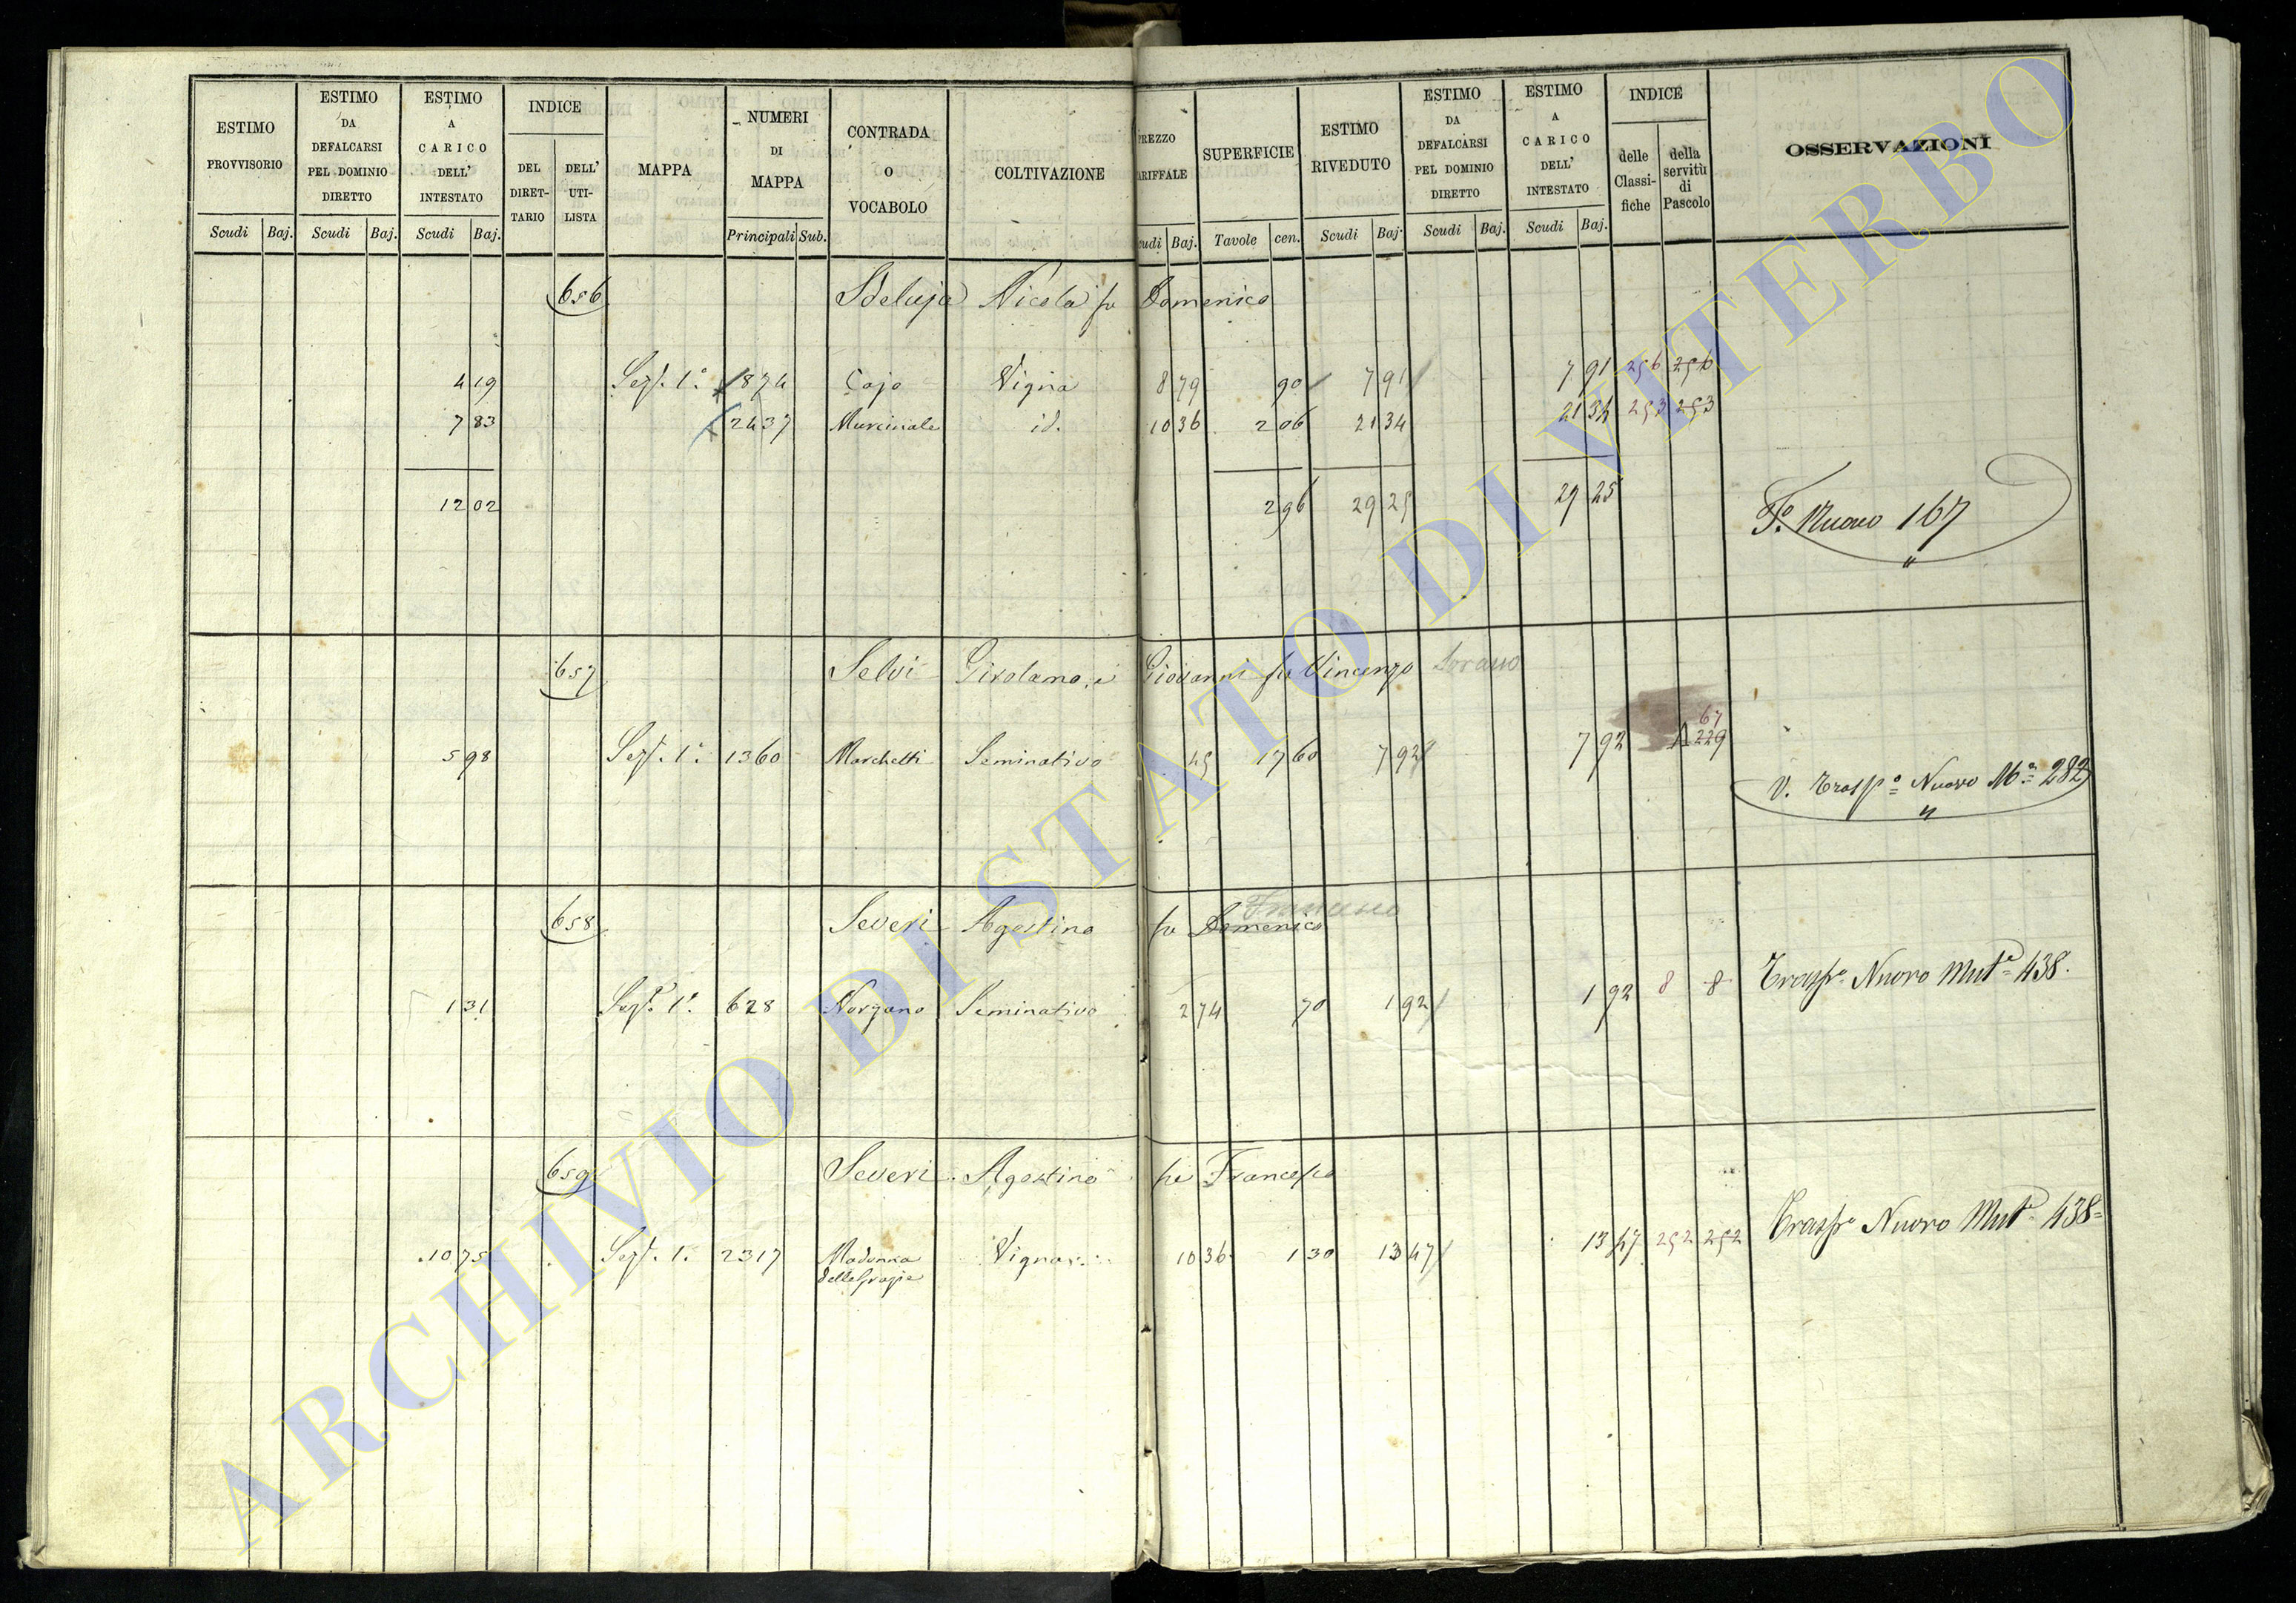 ESTIMO PROVVISORIO Scudi Baj.
ESTIMO DA DEFALCARSI PEL DOMINIO DIRETTO Scudi Baj.
ESTIMO A CARICO DELL' INTESTATO Scudi Baj.
INDICE DEL DIRET-TARIO DELL' UTI-LISTA
MAPPA
NUMERI DI MAPPA Principali Sub.
CONTRADA O VOCABOLO
COLTIVAZIONE
PREZZO TARIFFALE Scudi Baj.
SUPERFICIE Tavole cen.
ESTIMO RIVEDUTO Scudi Baj.
ESTIMO DA DEFALCARSI PEL DOMINIO DIRETTO Scudi Baj.
ESTIMO A CARICO DELL' INTESTATO Scudi Baj.
INDICE delle Classi-fiche della servitù di Pascolo
OSSERVAZIONI
656 Nicola fu Domenico
4 19 Sezt. 1ª 1874 Cajo Vigna 8 79 90 7 91 7 91 256 256
7 83 2437 Murcinale id. 10 36 2 06 21 34 21 34 253 253
12 02 2 96 29 25 29 25
Tº Nuovo 167
657 Selvi Girolamo, e Giovanni fu Vincenzo Sorano
67
5 98 Sezt. 1ª 1360 Marchetti Seminativo 45 17 60 7 92 7 92 229
V. Traspº Nuovo Mª 282
Francesco
658 Severi Agostino fu Domenico
1 31 Sezt. 1ª 628 Norzano Seminativo 2 74 70 1 92 1 92 8 8 Traspº Nuovo Mutª 438.
659 Severi Agostino fu Francesco
10 75 Sezt. 1ª 2317 Madonna delle Grazie Vigna 10 36 1 30 13 47 13 47 252 252 Traspº Nuovo Mutª 438
ARCHIVIO DI STATO DI VITERBO